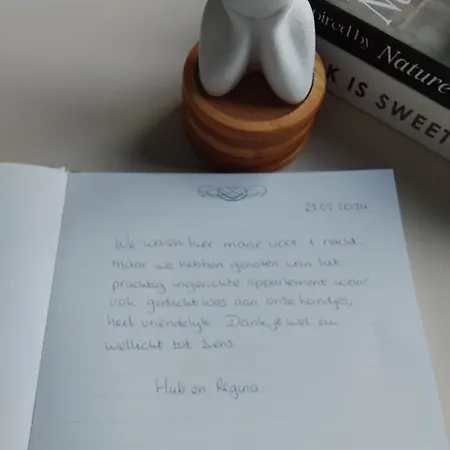 spired by Nature
K IS SWEET
23.02.2024
We waren hier maar voor 1 nacht.
maar we hebben genoten van het
prachtig ingerichte appartement waar
ook gedacht was aan onze hondjes,
heel vriendelijk. Dankjewel en
wellicht tot ziens.
Hub en Regina.